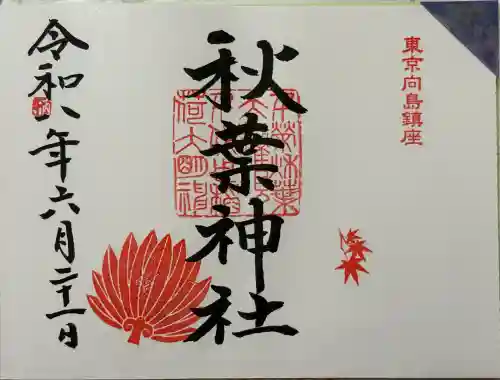 東京向島鎮座
秋葉神社
令和八年六月二十一日